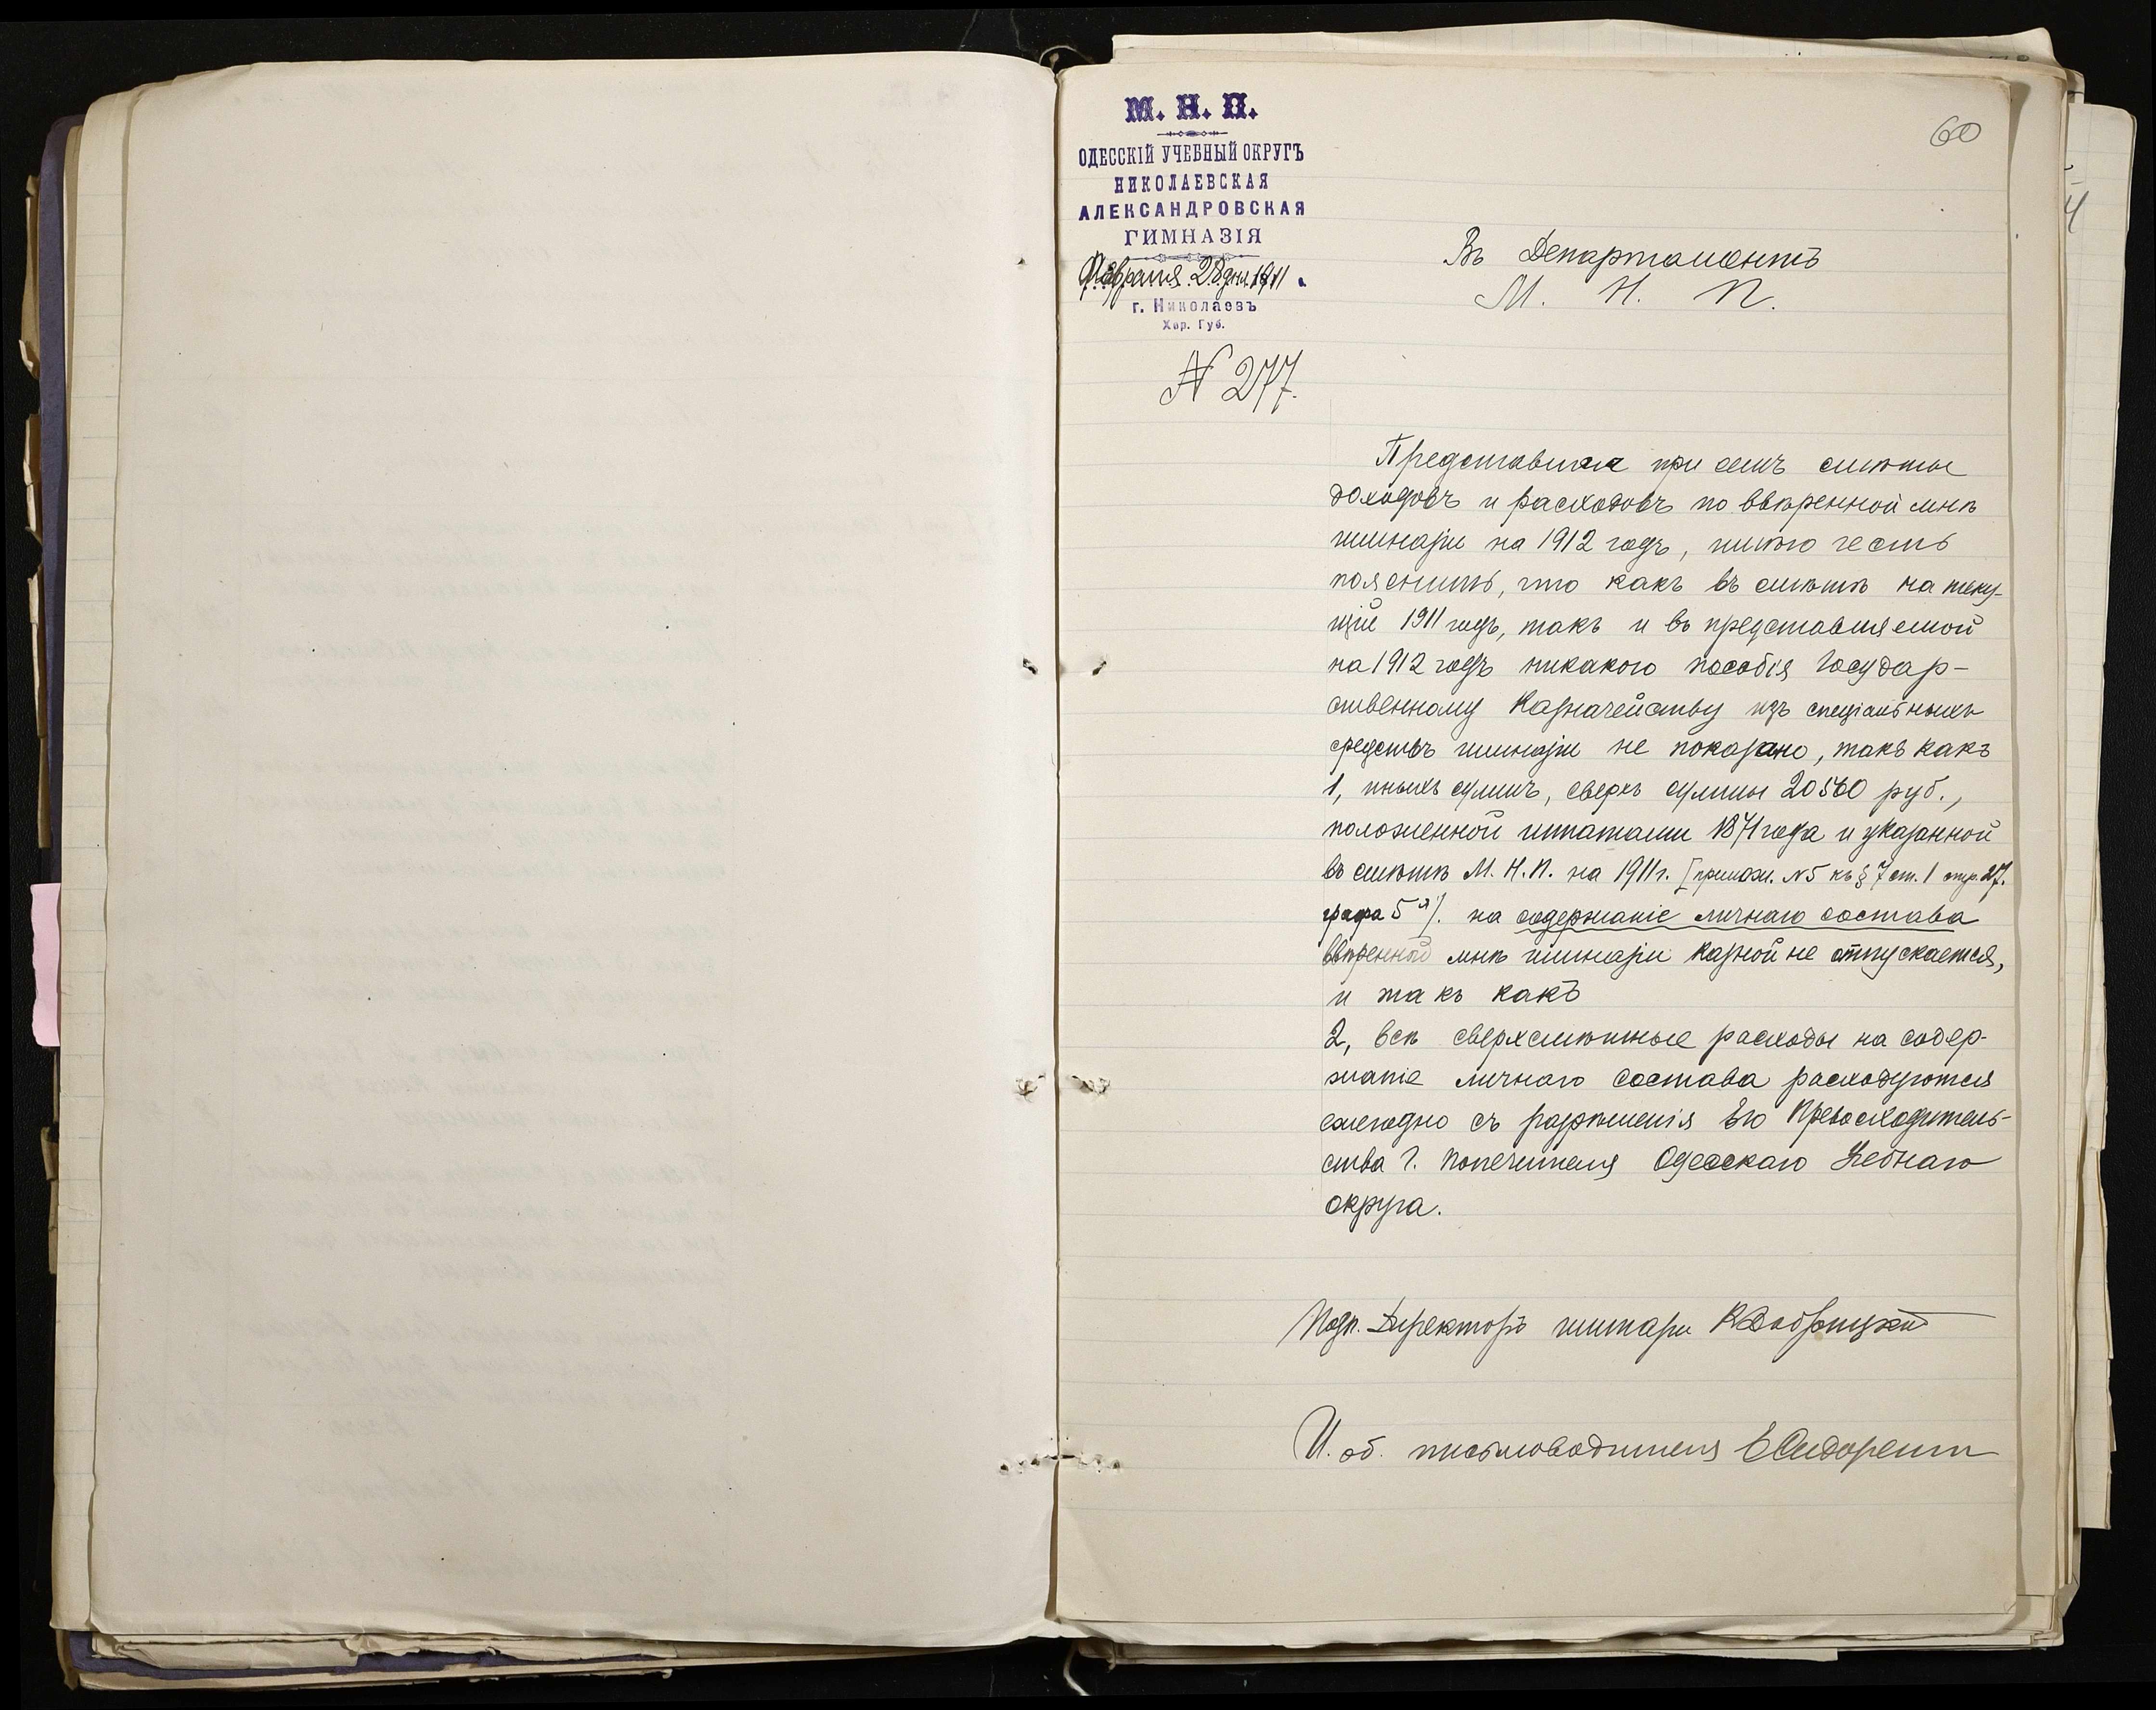 60
М. Н. П.
ОДЕССКІЙ УЧЕБНЫЙ ОКРУГЪ
НИКОЛАЕВСКАЯ
АЛЕКСАНДРОВСКАЯ
ГИМНАЗІЯ
Февраля 28 дня 1911
г. Николаевъ
Хер. Губ.
№ 277.
Въ Департаментъ
М. Н. П.
Представляя при семъ смѣты
доходовъ и расходовъ по ввѣренной мнѣ
гимназіи на 1912 годъ, имѣю честь
пояснить, что какъ въ смѣтѣ на теку-
щій 1911 годъ, такъ и въ представляемой
на 1912 годъ никакого пособія Государ-
ственному Казначейству изъ спеціальныхъ
средствъ гимназіи не показано, такъ какъ
1, иныхъ суммъ, сверхъ суммы 20560 руб.,
положенной штатами 1871 года и указанной
въ смѣтѣ М. Н. П. на 1911 г. [прилож. №5 къ § 7 ст. 1 стр. 27.
графа 5 я]. на содержаніе личнаго состава
ввѣренной мнѣ гимназіи казной не отпускается,
и такъ какъ
2, всѣ сверхсмѣтные расходы на содер-
жаніе личнаго состава расходуются
ежегодно съ разрѣшенія Его Превосходитель-
ства Г. Попечителя Одесскаго Учебнаго
округа.
Подп. Директоръ гимназіи
И. об. письмоводителя Е Сидоренко
4